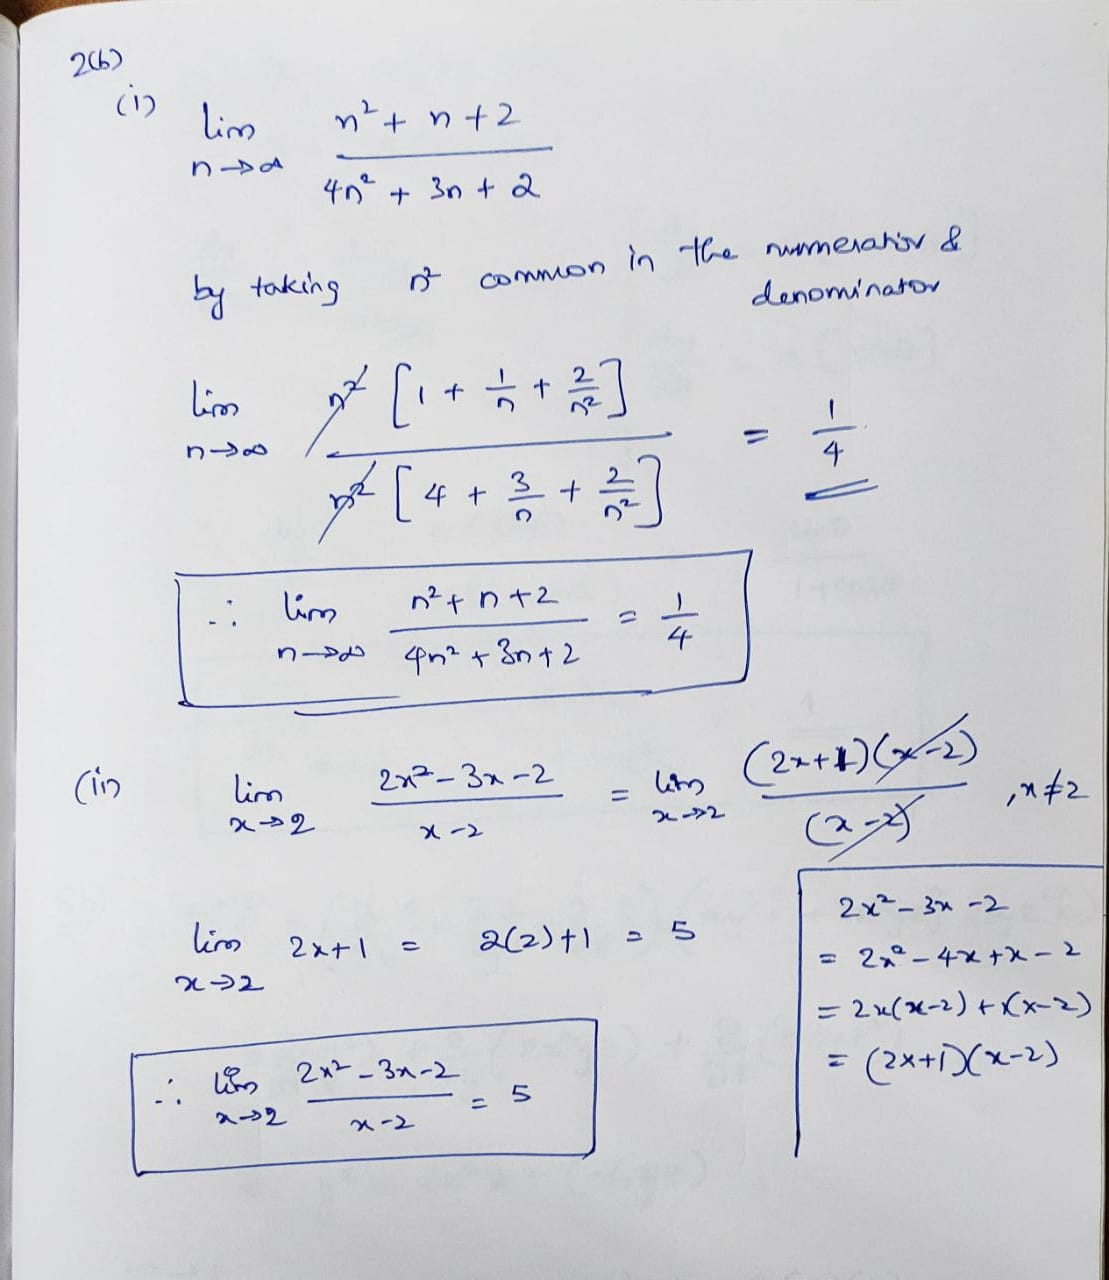 2(b)
(i) lim n→∞ (n² + n + 2) / (4n² + 3n + 2)
by taking n² common in the numerator &
denominator
lim n→∞ n² [1 + 1/n + 2/n²] / n² [4 + 3/n + 2/n²] = 1/4
∴ lim n→∞ (n² + n + 2) / (4n² + 3n + 2) = 1/4
(ii) lim x→2 (2x² – 3x – 2) / (x – 2) = lim x→2 (2x+1)(x–2) / (x–2) , x≠2
lim x→2 2x+1 = 2(2)+1 = 5
∴ lim x→2 (2x² – 3x – 2) / (x – 2) = 5
2x² – 3x – 2
= 2x² – 4x + x – 2
= 2x(x–2) + 1(x–2)
= (2x+1)(x–2)